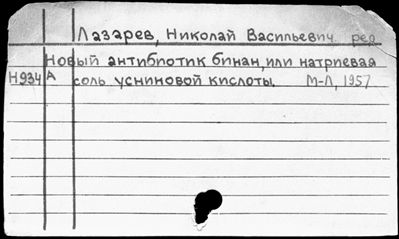 Лазарев, Николай Васильевич. ред
Новый антибиотик бинан, или натриевая
Н934 А соль усниновой кислоты. М-Л, 1957